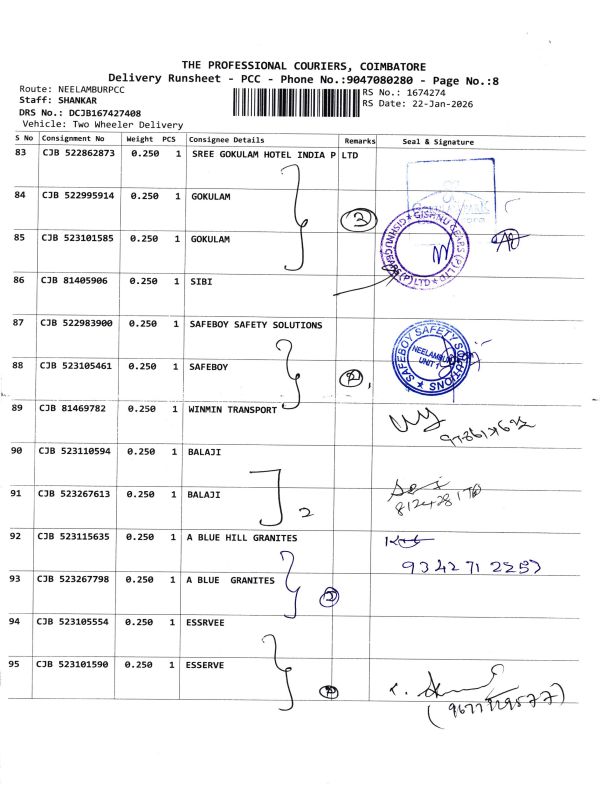 THE PROFESSIONAL COURIERS, COIMBATORE
Delivery Runsheet - PCC - Phone No.:9047080280 - Page No.:8
Route: NEELAMBURPCC
Staff: SHANKAR
DRS No.: DCJB167427408
Vehicle: Two Wheeler Delivery
RS No.: 1674274
RS Date: 22-Jan-2026
S No Consignment No Weight PCS Consignee Details Remarks Seal & Signature
83 CJB 522862873 0.250 1 SREE GOKULAM HOTEL INDIA P LTD
84 CJB 522995914 0.250 1 GOKULAM
85 CJB 523101585 0.250 1 GOKULAM
GISHNU GEARS (P) LTD
86 CJB 81405906 0.250 1 SIBI
87 CJB 522983900 0.250 1 SAFEBOY SAFETY SOLUTIONS
SAFEBOY SAFETY SOLUTIONS
NEELAMBUR
UNIT 1
88 CJB 523105461 0.250 1 SAFEBOY
89 CJB 81469782 0.250 1 WINMIN TRANSPORT
90 CJB 523110594 0.250 1 BALAJI
91 CJB 523267613 0.250 1 BALAJI
2
92 CJB 523115635 0.250 1 A BLUE HILL GRANITES
9342712257
93 CJB 523267798 0.250 1 A BLUE GRANITES
2
94 CJB 523105554 0.250 1 ESSRVEE
95 CJB 523101590 0.250 1 ESSERVE